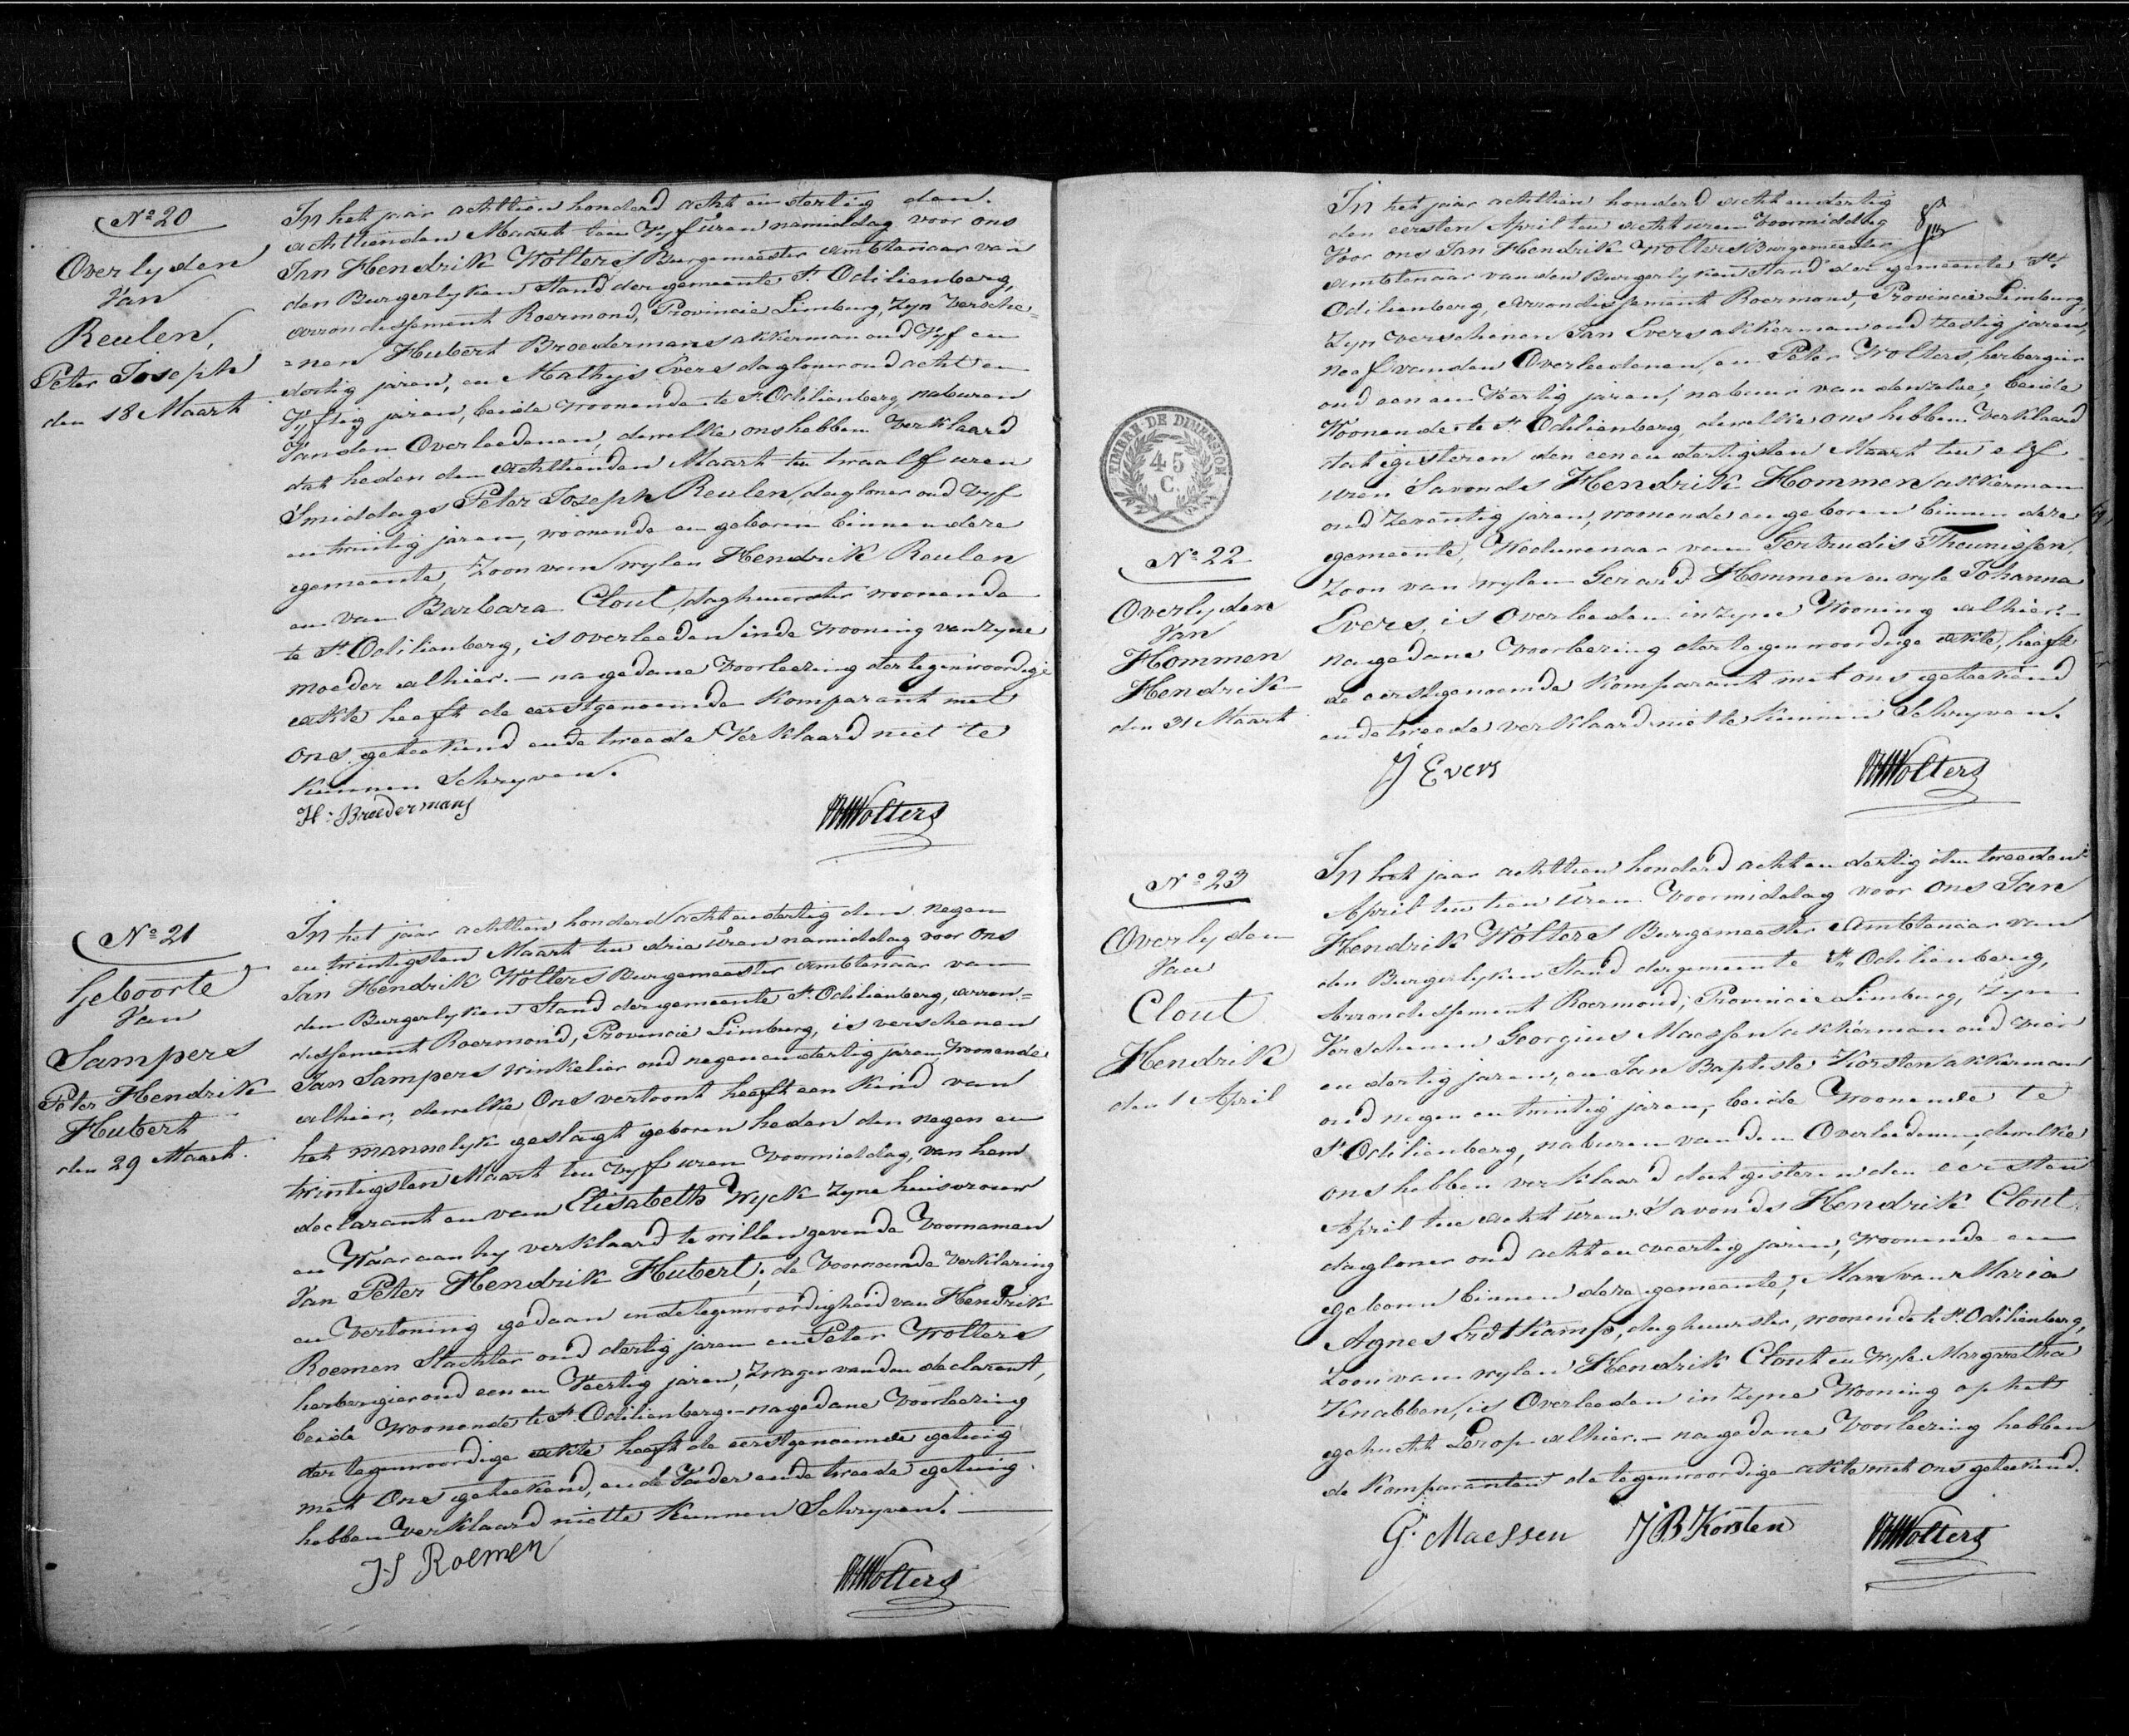 Nº 20
Overlyden
Van
Reulen,
Peter Joseph
den 18 Maart
In het jaar achttien honderd acht en dertig den
achttienden Maart ten Vyf uren namiddag voor ons
Jan Hendrik Wolters Burgemeester Ambtenaar van
den Burgerlyken Stand der gemeente St. Odilienberg,
arrondissement Roermond, Provincie Limburg, Zyn Versche=
=nen Hubert Broedermans akkerman oud Vyf en
dertig jaren, en Mathys Evers dagloner oud acht en
Vyftig jaren, beide woonende te St. Odilienberg, naburen
Van den Overleedenen, dewelke ons hebben Verklaard
dat heden den achttienden Maart ten twaalf uren
Smiddags Peter Joseph Reulen, dagloner oud Vyf
en twintig jaren, woonende en geboren binnen deze
gemeente, Zoon van wylen Hendrik Reulen
en van Barbara Clout, daghuurster woonende
te St. Odilienberg, is overleeden in de Wooning van zyne
moeder alhier. — na gedane Voorleezing der tegenwoordige
akte heeft de eerstgenoemde Komparant met
ons geteekend en de tweede Verklaard niet te
kunnen Schryven.
H: Broedermans
JHWolters
Nº 21
Geboorte
Van
Sampers
Peter Hendrik
Hubert
den 29 Maart.
In het jaar achttien honderd acht en dertig den negen
en twintigsten Maart ten drie uren namiddag voor Ons
Jan Hendrik Wolters Burgemeester Ambtenaar van
den Burgerlyken Stand der gemeente St. Odilienberg, arron=
dissement Roermond, Provincie Limburg, is verschenen
Jan Sampers winkelier oud negen en dertig jaren Woonende
alhier, dewelke Ons vertoont heeft een Kind van
het mannelyk geslagt geboren heden den negen en
twintigsten Maart ten Vyf uren Voormiddag, van hem
declarant en van Elisabeth Wyck zyne huisvrouw
en Waaraan hy verklaard te willen geven de Voornamen
Van Peter Hendrik Hubert; de Voornoemde Verklaring
en Vertoning gedaan in de tegenwoordigheid van Hendrik
Roemen Slachter oud dertig jaren en Peter Wolters
herbergier oud een en Veertig jaren, Zwager van den declarant,
beide Woonende te St. Odilienberg. — na gedane Voorleezing
der tegenwoordige akte heeft de eerstgenoemde getuig
met Ons geteekend, en de Vader en de tweede getuig
hebben Verklaard niet te Kunnen Schryven. —
H Roemen
JHWolters
TIMBRE DE DIMENSION
45
C.
Nº 22
Overlyden
Van
Hommen
Hendrik
den 31 Maart
In het jaar achttien honderd acht en dertig
den eersten April ten acht uren Voormiddag
Voor ons Jan Hendrik Wolters Burgemeester
Ambtenaar van den Burgerlyken Stand der gemeente St.
Odilienberg, Arrondissement Roermond, Provincie Limburg,
Zyn Verschenen Jan Evers akkerman oud Zestig jaren,
neef van den Overleedenen, en Peter Wolters, herbergier
oud een en Veertig jaren, nabuur van denzelve, beide
Woonende te St. Odilienberg, dewelke ons hebben Verklaard
dat gisteren den een en dertigsten Maart ten elf
uren Savonds Hendrik Hommen akkerman
oud Zeventig jaren, woonende en geboren binnen deze
gemeente, Weduwenaar van Gertrudis Theunissen,
Zoon van wylen Gerard Hommen en wyle Johanna
Evers, is Overleeden in zyne Wooning alhier. —
na gedane Voorleezing der tegenwoordige akte, heeft
de eerstgenoemde Komparant met ons geteekend
en de tweede verklaard niet te Kunnen Schryven.
J Evers
JHWolters
Nº 23
Overlyden
Van
Clout
Hendrik
den 1 April
In het jaar achttien honderd acht en dertig den tweeden
April ten tien Uren Voormiddag voor Ons Jan
Hendrik Wolters Burgemeester Ambtenaar van
den Burgerlyken Stand der gemeente St. Odilienberg,
Arrondissement Roermond, Provincie Limburg, Zyn
Verschenen Georgius Maessen akkerman oud Vier
en dertig jaren, en Jan Baptiste Korsten akkerman
oud negen en twintig jaren, beide Woonende te
St. Odilienberg, naburen van den Overleedenen, dewelke
ons hebben verklaard dat gisteren den eersten
April ten acht uren Savonds Hendrik Clout
dagloner oud acht en veertig jaren, Woonende en
geboren binnen deze gemeente, Man van Maria
Agnes Erdtkamp, daghuurster, woonende te St. Odilienberg,
Zoon van wylen Hendrik Clout en wyle Margaretha
Knabben, is Overleeden in zyne Wooning op het
gehucht Lerop alhier. — na gedane Voorleezing hebben
de Komparanten de tegenwoordige akte met ons geteekend.
G. Maessen
J B Korsten
JHWolters